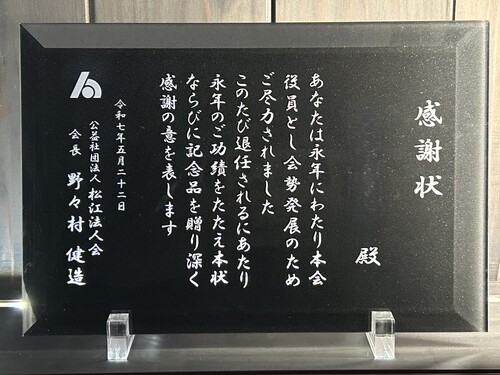 感謝状
殿
あなたは永年にわたり本会
役員とし会勢発展のため
ご尽力されました
このたび退任されるにあたり
永年のご功績をたたえ本状
ならびに記念品を贈り深く
感謝の意を表します
令和七年五月二十二日
公益社団法人松江法人会
会長 野々村健造